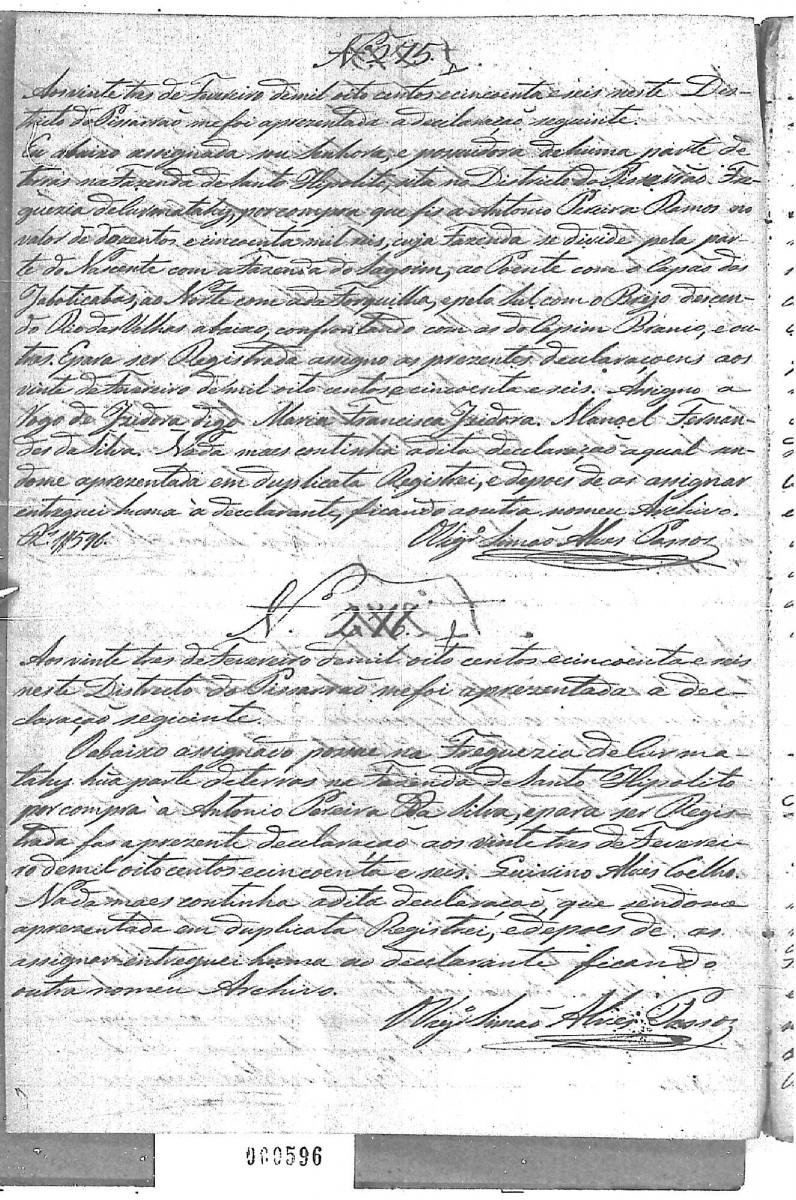 Nº 275.
Aos vinte tres de Fevereiro de mil oito centos e cincoenta e seis neste Des-
tricto do Pissarrão me foi aprezentada a declaração seguinte.
Eu abaixo assignada sou Senhora, e possuidora de huma parte de
terras na Fazenda de Santo Hipolito, sita no Districto do Pissarrão Fre-
guezia de Curmatahy, por compra que fis a Antonio Pereira Ramos no
valor de dozentos e cincoenta mil reis, cuja Fazenda se divide pela par-
te do Nascente com a Fazenda do Lagoim, ao Poente com o Capão das
Jaboticabas, ao Norte com a da Forquilha, e pelo Sul com o Brejo descen-
do Rio das Velhas abaixo, confrontando com as do Capim Branco, e ou-
tras. E para ser Registrada assigno as prezentes declaraçoens aos
vinte de Fevereiro de mil oito centos e cincoenta e seis. Assigno a
rogo de Izidora digo Maria Francisca Izidora. Manoel Fernan-
des da Silva. Nada mais continha a dita declaração a qual sen-
dome aprezentada em duplicata Registrei, e depois de as assignar
entreguei huma à declarante, ficando a outra no meu Archivo.
1$596. O Vigrº Simão Alves Passos
Nº 276.
Aos vinte tres de Fevereiro de mil oito centos e cincoenta e seis
neste Districto do Pissarrão me foi aprezentada a dec-
laração seguinte.
O abaixo assignado possue na Freguezia de Curma-
tahy hũa parte de terras na Fazenda de Santo Hipolito
por compra à Antonio Pereira Da Silva, e para ser Regis-
trada fas a prezente declaração aos vinte tres de Feverei-
ro de mil oito centos e cincoenta e seis. Quirino Alves Coelho.
Nada mais continha a dita declaração, que sendome
aprezentada em duplicata Registrei, e depois de as
assignar entreguei huma ao declarante ficando
outra no meu Archivo.
O Vigrº Simão Alves Passos
000596